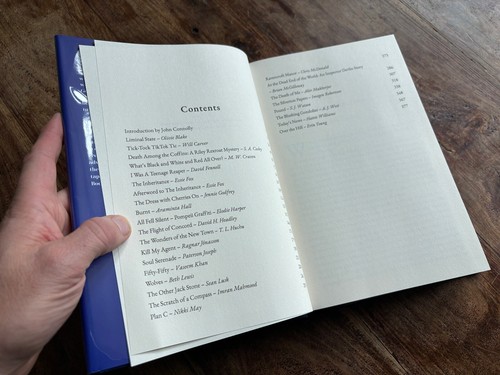 Contents
Introduction by John Connolly
Liminal State – Olivie Blake
Tick-Tock TikTok Tic – Will Carver
Death Among the Coffins: A Riley Rezeau Mystery – S. A. Cosby
What's Black and White and Red All Over? – M. W. Craven
I Was A Teenage Reaper – David Fennell
The Inheritance – Essie Fox
Afterword to The Inheritance – Essie Fox
The Dress with Cherries On – Jennie Godfrey
Burn – Araminta Hall
All Fell Silent – Pompeii Graffiti – Elodie Harper
The Flight of Concord – David H. Headley
The Wonders of the New Town – T. L. Huchu
Kill My Agent – Ragnar Jónasson
Soul Serenade – Paterson Joseph
Fifty-Fifty – Vaseem Khan
Wolves – Beth Lewis
The Other Jack Stone – Sean Lusk
The Scratch of a Compass – Imran Mahmood
Plan C – Nikki May
Manor – Chris McDonald
At the Dead End of the World: An Inspector
– Brian McGilloway
The Death of Me – Alex
The Mouston Papers – Imogen Robertson
Power – S. J. Watson
The Working Gentleman – R. J. West
Today's News – Stuart
Over the Hill – Erin Young